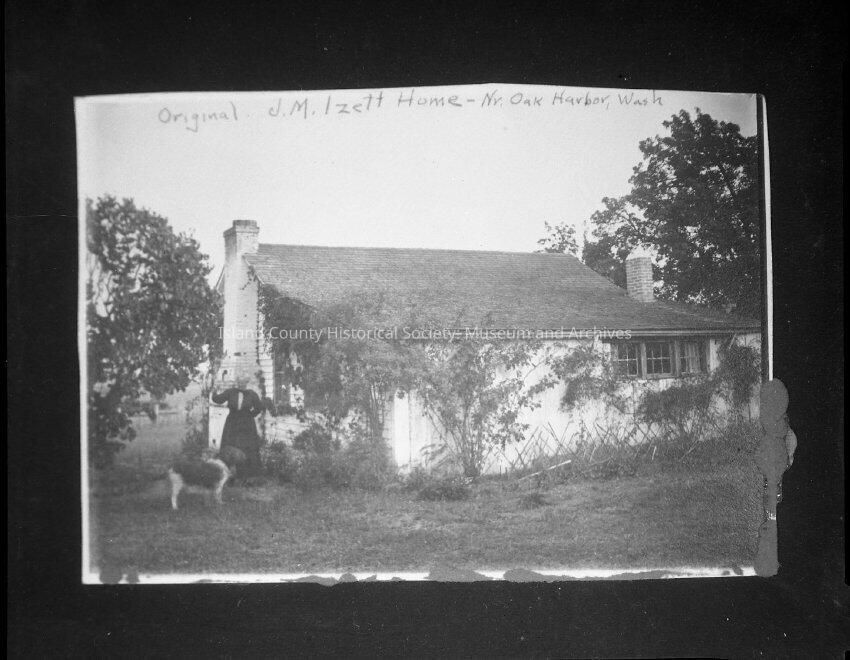 Original J.M. Izett Home - Nr. Oak Harbor, Wash
Island County Historical Society Museum and Archives